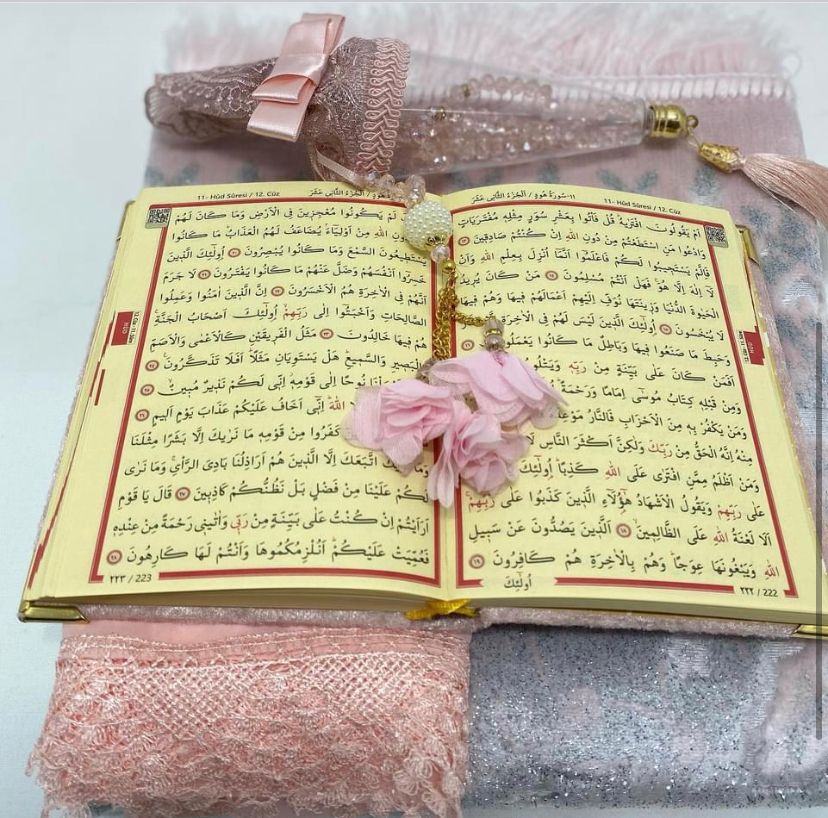 11- Hûd Sûresi / 12. Cüz
١١-سُورَةُ هُودٍ / اَلْجُزْءُ الثَّانِى عَشَرَ
اَمْ يَقُولُونَ افْتَرٰيهُ قُلْ فَأْتُوا بِعَشْرِ سُوَرٍ مِثْلِهِ مُفْتَرَيَاتٍ
وَادْعُوا مَنِ اسْتَطَعْتُمْ مِنْ دُونِ اللّٰهِ اِنْ كُنْتُمْ صَادِقِينَ ١٣
فَاِلَّمْ يَسْتَجِيبُوا لَكُمْ فَاعْلَمُوا اَنَّمَا اُنْزِلَ بِعِلْمِ اللّٰهِ وَاَنْ
لَا اِلٰهَ اِلَّا هُوَ فَهَلْ اَنْتُمْ مُسْلِمُونَ ١٤ مَنْ كَانَ يُرِيدُ
الْحَيٰوةَ الدُّنْيَا وَزِينَتَهَا نُوَفِّ اِلَيْهِمْ اَعْمَالَهُمْ فِيهَا وَهُمْ فِيهَا
لَا يُبْخَسُونَ ١٥ اُولٰٓئِكَ الَّذِينَ لَيْسَ لَهُمْ فِى الْاٰخِرَةِ
وَحَبِطَ مَا صَنَعُوا فِيهَا وَبَاطِلٌ مَا كَانُوا يَعْمَلُونَ
اَفَمَنْ كَانَ عَلٰى بَيِّنَةٍ مِنْ رَبِّهِ
وَمِنْ قَبْلِهِ كِتَابُ مُوسٰٓى اِمَامًا وَرَحْمَةً
وَمَنْ يَكْفُرْ بِهِ مِنَ الْاَحْزَابِ فَالنَّارُ
مِنْهُ اِنَّهُ الْحَقُّ مِنْ رَبِّكَ وَلٰكِنَّ اَكْثَرَ النَّاسِ لَا
وَمَنْ اَظْلَمُ مِمَّنِ افْتَرٰى عَلَى اللّٰهِ كَذِبًا اُولٰٓئِكَ
عَلٰى رَبِّهِمْ وَيَقُولُ الْاَشْهَادُ هٰٓؤُلَٓاءِ الَّذِينَ كَذَبُوا عَلٰى رَبِّهِمْ
اَلَا لَعْنَةُ اللّٰهِ عَلَى الظَّالِمِينَ ١٨ اَلَّذِينَ يَصُدُّونَ عَنْ سَبِيلِ
اللّٰهِ وَيَبْغُونَهَا عِوَجًا وَهُمْ بِالْاٰخِرَةِ هُمْ كَافِرُونَ ١٩
اُولٰٓئِكَ
٢٢٢ / 222
11- Hûd Sûresi / 12. Cüz
هُودٍ / اَلْجُزْءُ الثَّانِى عَشَرَ
لَمْ يَكُونُوا مُعْجِزِينَ فِى الْاَرْضِ وَمَا كَانَ لَهُمْ
دُونِ اللّٰهِ مِنْ اَوْلِيَٓاءَ يُضَاعَفُ لَهُمُ الْعَذَابُ مَا كَانُوا
يَسْتَطِيعُونَ السَّمْعَ وَمَا كَانُوا يُبْصِرُونَ ٢٠ اُولٰٓئِكَ الَّذِينَ
خَسِرُٓوا اَنْفُسَهُمْ وَضَلَّ عَنْهُمْ مَا كَانُوا يَفْتَرُونَ ٢١ لَا جَرَمَ
اَنَّهُمْ فِى الْاٰخِرَةِ هُمُ الْاَخْسَرُونَ ٢٢ اِنَّ الَّذِينَ اٰمَنُوا وَعَمِلُوا
الصَّالِحَاتِ وَاَخْبَتُٓوا اِلٰى رَبِّهِمْ اُولٰٓئِكَ اَصْحَابُ الْجَنَّةِ
هُمْ فِيهَا خَالِدُونَ ٢٣ مَثَلُ الْفَرِيقَيْنِ كَالْاَعْمٰى وَالْاَصَمِّ
وَالْبَصِيرِ وَالسَّمِيعِ هَلْ يَسْتَوِيَانِ مَثَلًا اَفَلَا تَذَكَّرُونَ ٢٤
اَرْسَلْنَا نُوحًا اِلٰى قَوْمِهِ اِنِّى لَكُمْ نَذِيرٌ مُبِينٌ ٢٥
اللّٰهَ اِنِّٓى اَخَافُ عَلَيْكُمْ عَذَابَ يَوْمٍ اَلِيمٍ ٢٦
كَفَرُوا مِنْ قَوْمِهِ مَا نَرٰيكَ اِلَّا بَشَرًا مِثْلَنَا
وَمَا نَرٰيكَ اتَّبَعَكَ اِلَّا الَّذِينَ هُمْ اَرَاذِلُنَا بَادِىَ الرَّأْىِ وَمَا نَرٰى
لَكُمْ عَلَيْنَا مِنْ فَضْلٍ بَلْ نَظُنُّكُمْ كَاذِبِينَ ٢٧ قَالَ يَا قَوْمِ
اَرَاَيْتُمْ اِنْ كُنْتُ عَلٰى بَيِّنَةٍ مِنْ رَبِّى وَاٰتٰينِى رَحْمَةً مِنْ عِنْدِهِ
فَعُمِّيَتْ عَلَيْكُمْ اَنُلْزِمُكُمُوهَا وَاَنْتُمْ لَهَا كَارِهُونَ ٢٨
٢٢٣ / 223